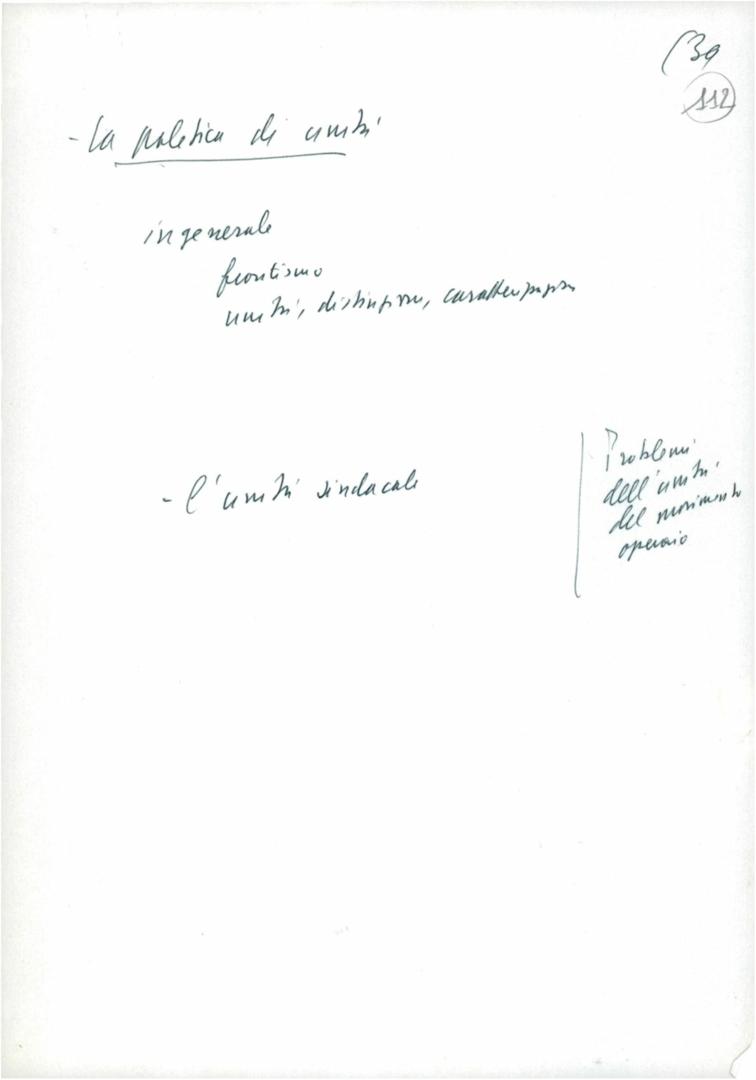 (39
112
- La politica di unità
in generale
frontismo
unità, distinzione,
- l'unità sindacale
Problemi
dell'unità
del movimento
operaio